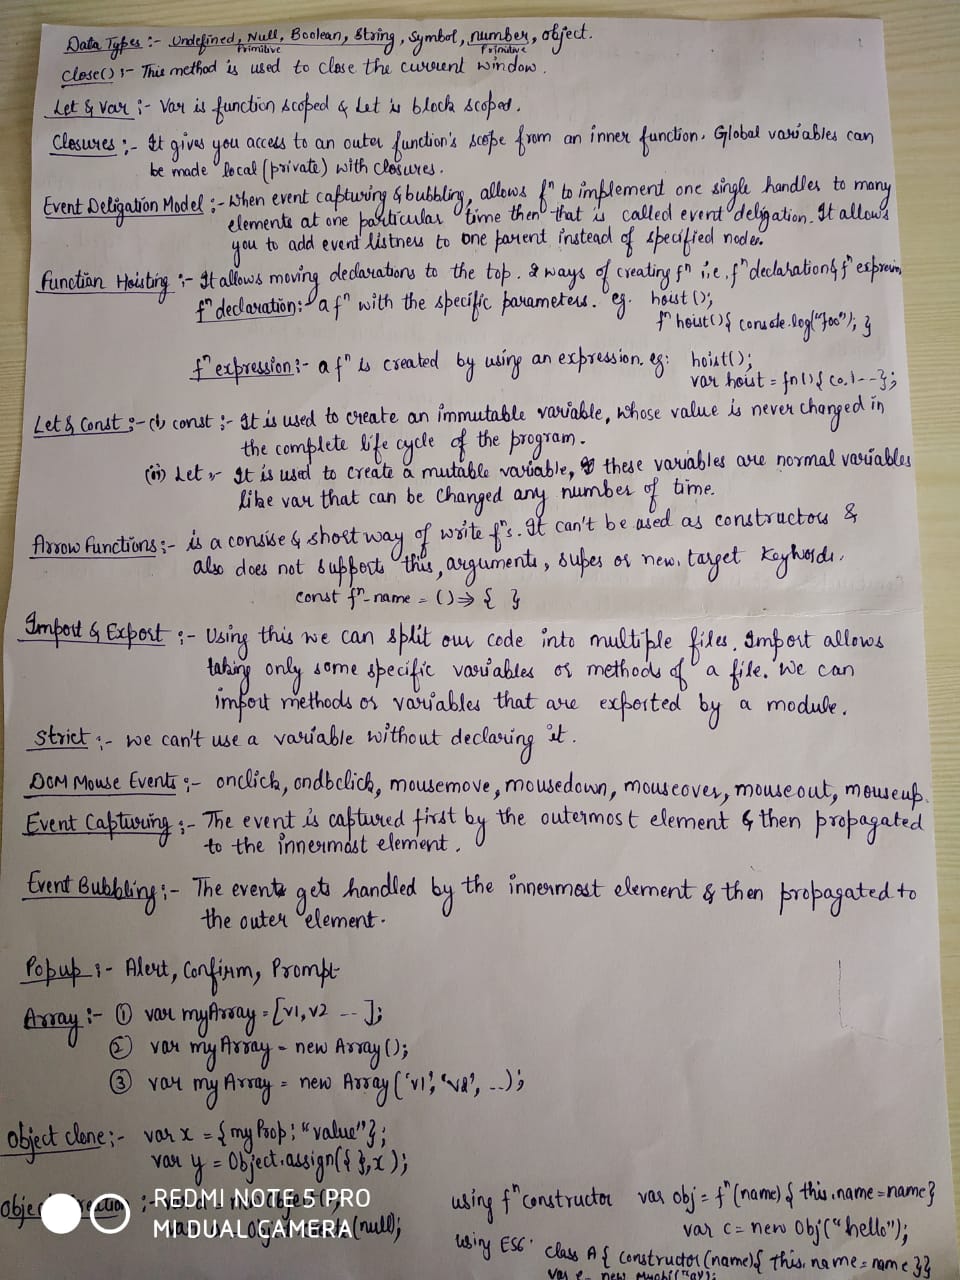 Data Types :- Undefined, Null, Boolean, String, Symbol, number, object.
Primitive Primitive
Close() :- This method is used to close the current window.
Let & Var :- Var is function scoped & Let is block scoped.
Closures :- It gives you access to an outer function's scope from an inner function. Global variables can
be made local (private) with closures.
Event Deligation Model :- When event capturing & bubbling, allows fⁿ to implement one single handles to many
elements at one particular time then that is called event deligation. It allows
you to add event listners to one parent instead of specified nodes.
Function Hoisting :- It allows moving declarations to the top. 2 ways of creating fⁿ i.e, fⁿ declaration & fⁿ
fⁿ declaration :- a fⁿ with the specific parameters. eg. hoist();
fⁿ hoist() { console.log("foo"); }
fⁿ expression :- a fⁿ is created by using an expression. eg: hoist();
var hoist = fn() { co.l--};
Let & Const :- (i) const :- It is used to create an immutable variable, whose value is never changed in
the complete life cycle of the program.
(ii) Let :- It is used to create a mutable variable, these variables are normal variables
like var that can be changed any number of time.
Arrow Functions :- is a consise & short way of write fⁿs. It can't be used as constructors &
also does not supports this, arguments, super or new.target keywords.
const fⁿ_name = () => { }
Import & Export :- Using this we can split our code into multiple files. Import allows
taking only some specific variables or methods of a file. We can
import methods or variables that are exported by a module.
Strict :- we can't use a variable without declaring it.
DOM Mouse Events :- onclick, ondbclick, mousemove, mousedown, mouseover, mouseout, mouseup.
Event Capturing :- The event is captured first by the outermost element & then propagated
to the innermost element.
Event Bubbling :- The event gets handled by the innermost element & then propagated to
the outer element.
Popup :- Alert, Confirm, Prompt
Array :- ① var myArray = [v1, v2 -- ];
② var myArray = new Array();
③ var myArray = new Array('v1', 'v2', --);
Object clone :- var x = {myProp: "value"};
var y = Object.assign({ }, x);
using fⁿ constructor var obj = fⁿ (name) { this.name = name}
(null); var c = new Obj("hello");
using ES6: class A { constructor (name) { this.name = name }}
REDMI NOTE 5 PRO
MI DUAL CAMERA